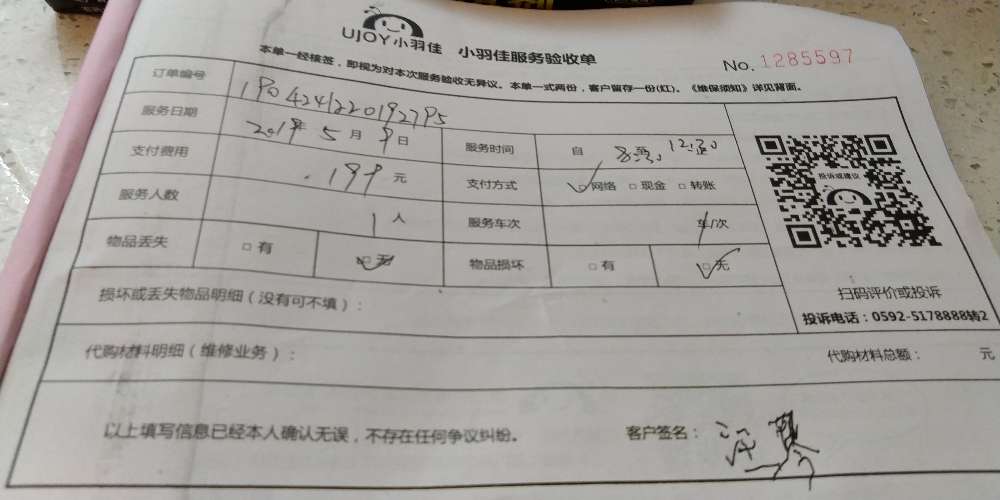 UJOY小羽佳 小羽佳服务验收单
No. 1285597
本单一经核签，即视为对本次服务验收无异议。本单一式两份，客户留存一份(红)。《维保须知》详见背面。
订单编号 1904241220192795
服务日期 2019年 5 月 9 日 服务时间 自
支付费用 199 元 支付方式 □网络 □现金 □转账
服务人数 1 人 服务车次 车/次
物品丢失 □有 □无 物品损坏 □有 □无
投诉或建议
扫码评价或投诉
投诉电话：0592-5178888转2
损坏或丢失物品明细（没有可不填）：
代购材料明细（维修业务）： 代购材料总额： 元
以上填写信息已经本人确认无误，不存在任何争议纠纷。 客户签名：